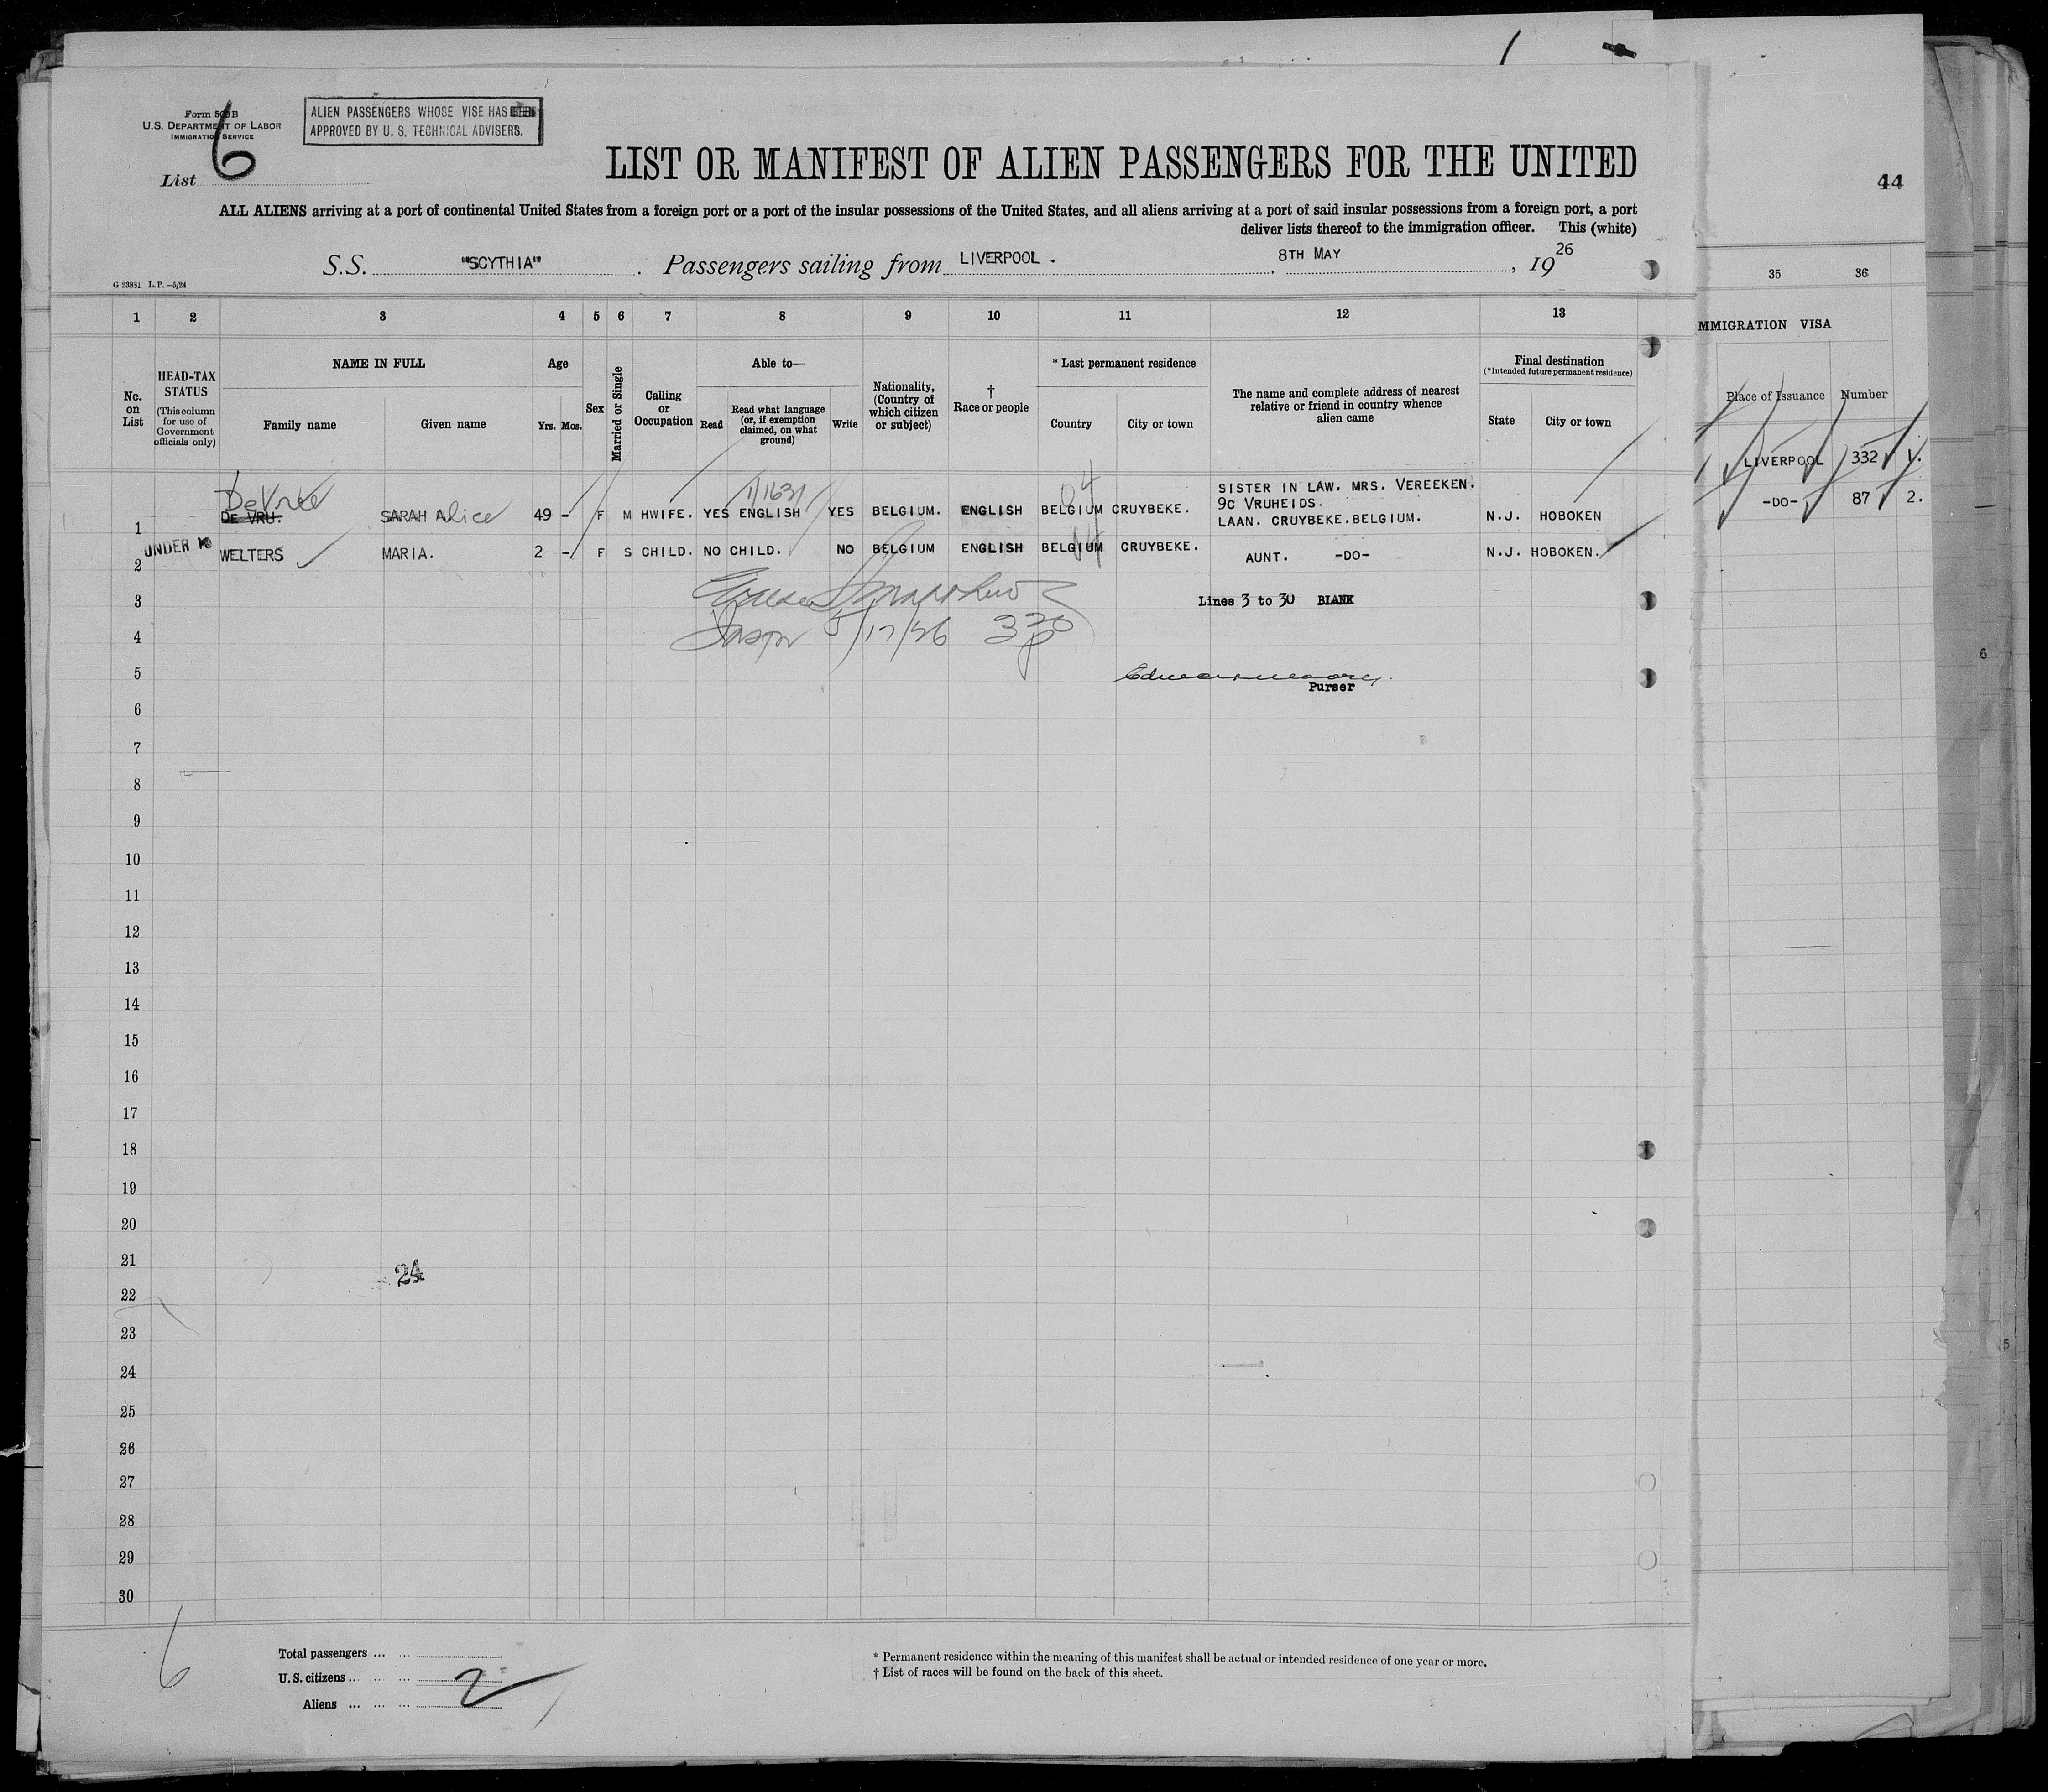 1
Form 500B
U.S. DEPARTMENT OF LABOR
IMMIGRATION SERVICE
List 6
ALIEN PASSENGERS WHOSE VISE HAS BEEN
APPROVED BY U. S. TECHNICAL ADVISERS.
LIST OR MANIFEST OF ALIEN PASSENGERS FOR THE UNITED
44
ALL ALIENS arriving at a port of continental United States from a foreign port or a port of the insular possessions of the United States, and all aliens arriving at a port of said insular possessions from a foreign port, a port
deliver lists thereof to the immigration officer. This (white)
S.S. "SCYTHIA" . Passengers sailing from LIVERPOOL . , 8TH MAY , 19 26
G 23881 L.P.—5/24
1 2 3 4 5 6 7 8 9 10 11 12 13 35 36
No. on List
HEAD-TAX STATUS
(This column for use of Government officials only)
NAME IN FULL
Family name Given name
Age
Yrs. Mos.
Sex
Married or Single
Calling or Occupation
Able to—
Read
Read what language (or, if exemption claimed, on what ground)
Write
Nationality, (Country of which citizen or subject)
† Race or people
* Last permanent residence
Country City or town
The name and complete address of nearest relative or friend in country whence alien came
Final destination
(*Intended future permanent residence)
State City or town
MMIGRATION VISA
Place of Issuance Number
DeVree
1 DE VRU. SARAH Alice 49 - F M HWIFE. YES ENGLISH YES BELGIUM. ENGLISH BELGIUM CRUYBEKE. SISTER IN LAW. MRS. VEREEKEN. 9C VRUHEIDS. LAAN. CRUYBEKE.BELGIUM. N.J. HOBOKEN LIVERPOOL 332 1.
2 UNDER WELTERS MARIA. 2 - F S CHILD. NO CHILD. NO BELGIUM ENGLISH BELGIUM CRUYBEKE. AUNT. -DO- N.J. HOBOKEN. -DO- 87 2.
3 Lines 3 to 30 BLANK
4 5/17/26
5
Purser
6
7
8
9
10
11
12
13
14
15
16
17
18
19
20
21
24
22
23
24
25
26
27
28
29
30
6
Total passengers ... ...
U. S. citizens ... ... ...
Aliens ... ... ... 2
* Permanent residence within the meaning of this manifest shall be actual or intended residence of one year or more.
† List of races will be found on the back of this sheet.
6
5